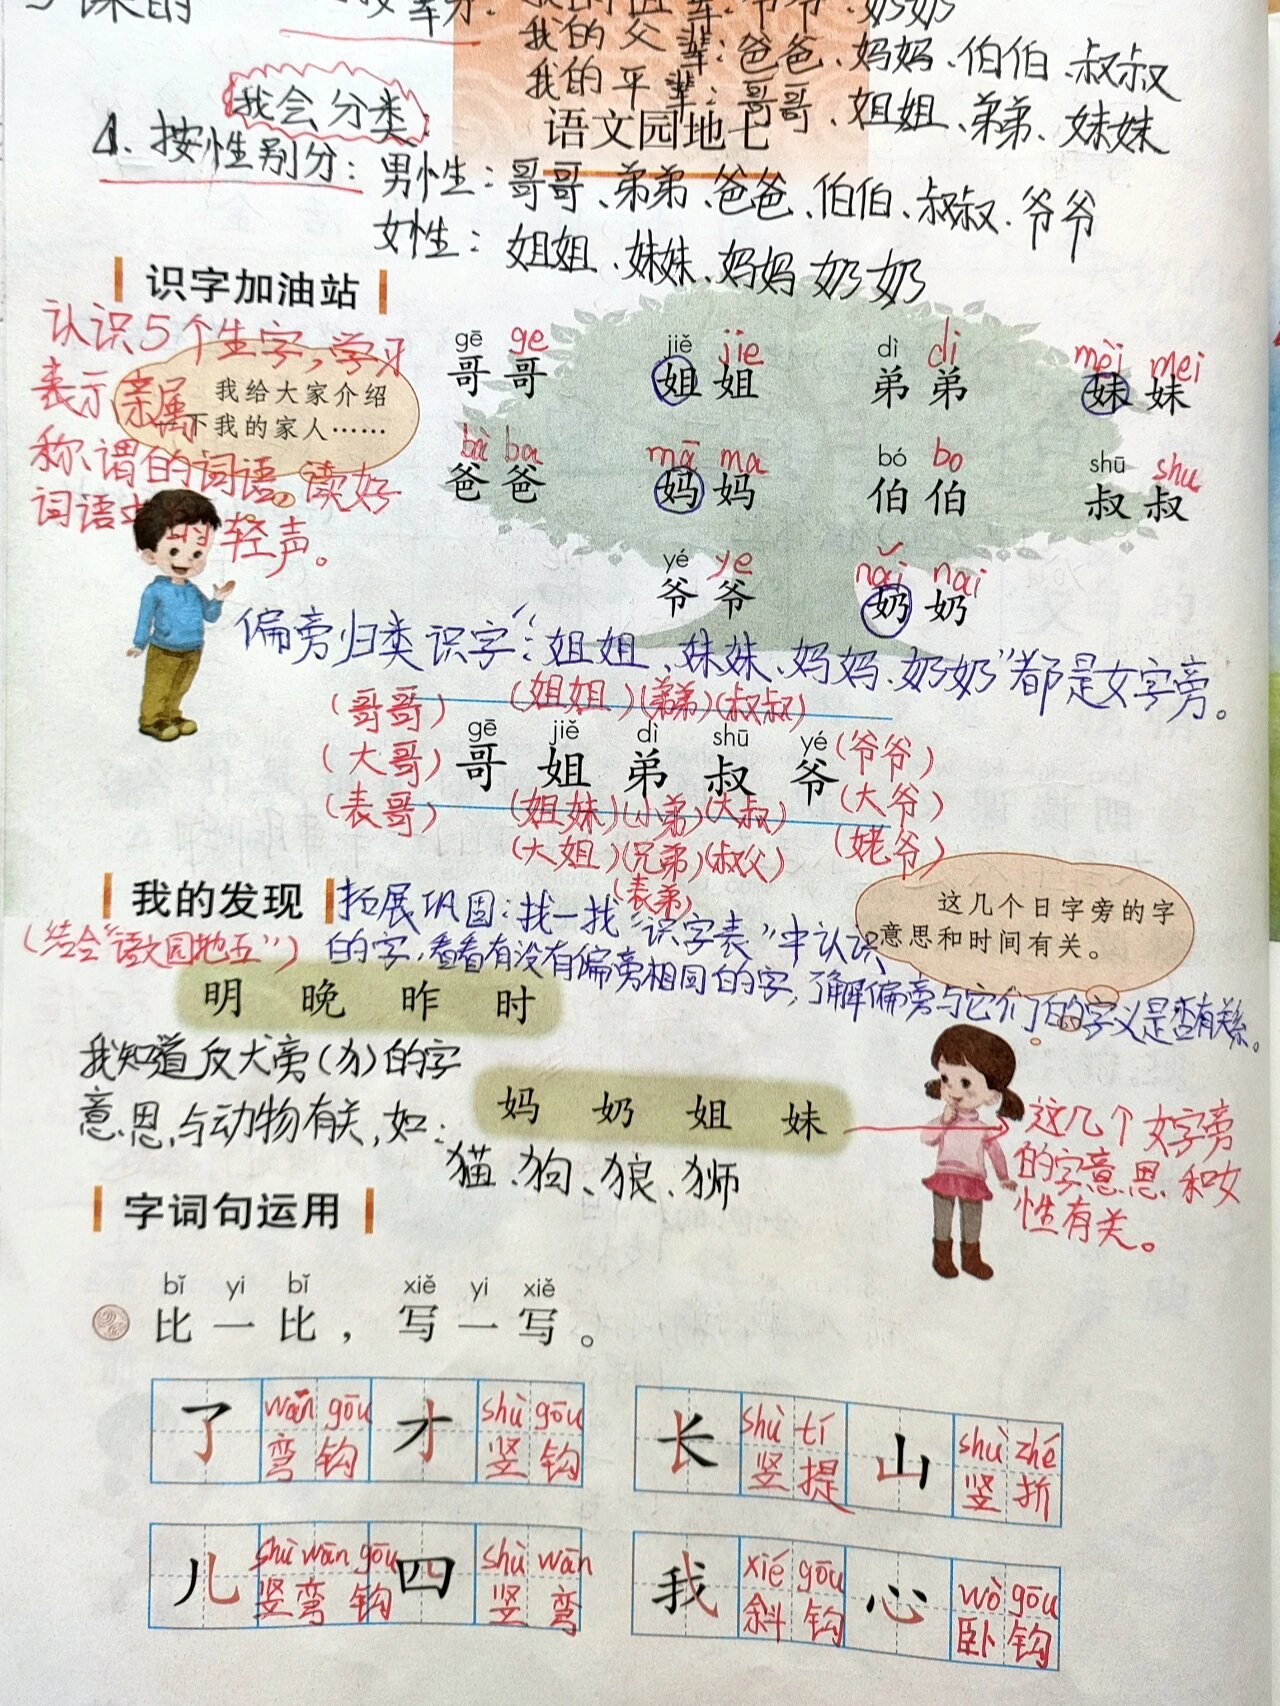 我的父辈：爸爸、妈妈、伯伯、叔叔
我的平辈：哥哥、姐姐、弟弟、妹妹
我会分类：
语文园地七
1、按性别分：男性：哥哥、弟弟、爸爸、伯伯、叔叔、爷爷
女性：姐姐、妹妹、妈妈 奶奶
识字加油站
认识5个生字，学习
表示亲属
称谓的词语。读好
词语中的轻声。
我给大家介绍
下我的家人……
gē ge jiě jie dì di mèi mei
哥哥 姐姐 弟弟 妹妹
bà ba mā ma bó bo shū shu
爸爸 妈妈 伯伯 叔叔
yé ye nǎi nai
爷爷 奶奶
偏旁归类识字：“姐姐、妹妹、妈妈、奶奶”都是女字旁。
(哥哥) (姐姐)(弟弟)(叔叔)
gē jiě dì shū yé (爷爷)
(大哥) 哥 姐 弟 叔 爷
(表哥) (姐妹)(小弟)(大叔) (大爷)
(大姐)(兄弟)(叔父) (姥爷)
(表弟)
我的发现
(结合“语文园地五”)
拓展巩固：找一找“识字表”中认识
的字，看看有没有偏旁相同的字，了解偏旁与它们的字义是否有关系。
这几个日字旁的字
意思和时间有关。
明 晚 昨 时
我知道反犬旁(犭)的字
意思与动物有关，如：
猫、狗、狼、狮
妈 奶 姐 妹
这几个女字旁
的字意思和女
性有关。
字词句运用
bǐ yi bǐ xiě yi xiě
比一比，写一写。
wān gōu shù gōu shù tí shù zhé
了 弯钩 才 竖钩 长 竖提 山 竖折
shù wān gōu shù wān xié gōu wò gōu
儿 竖弯钩 四 竖弯 我 斜钩 心 卧钩